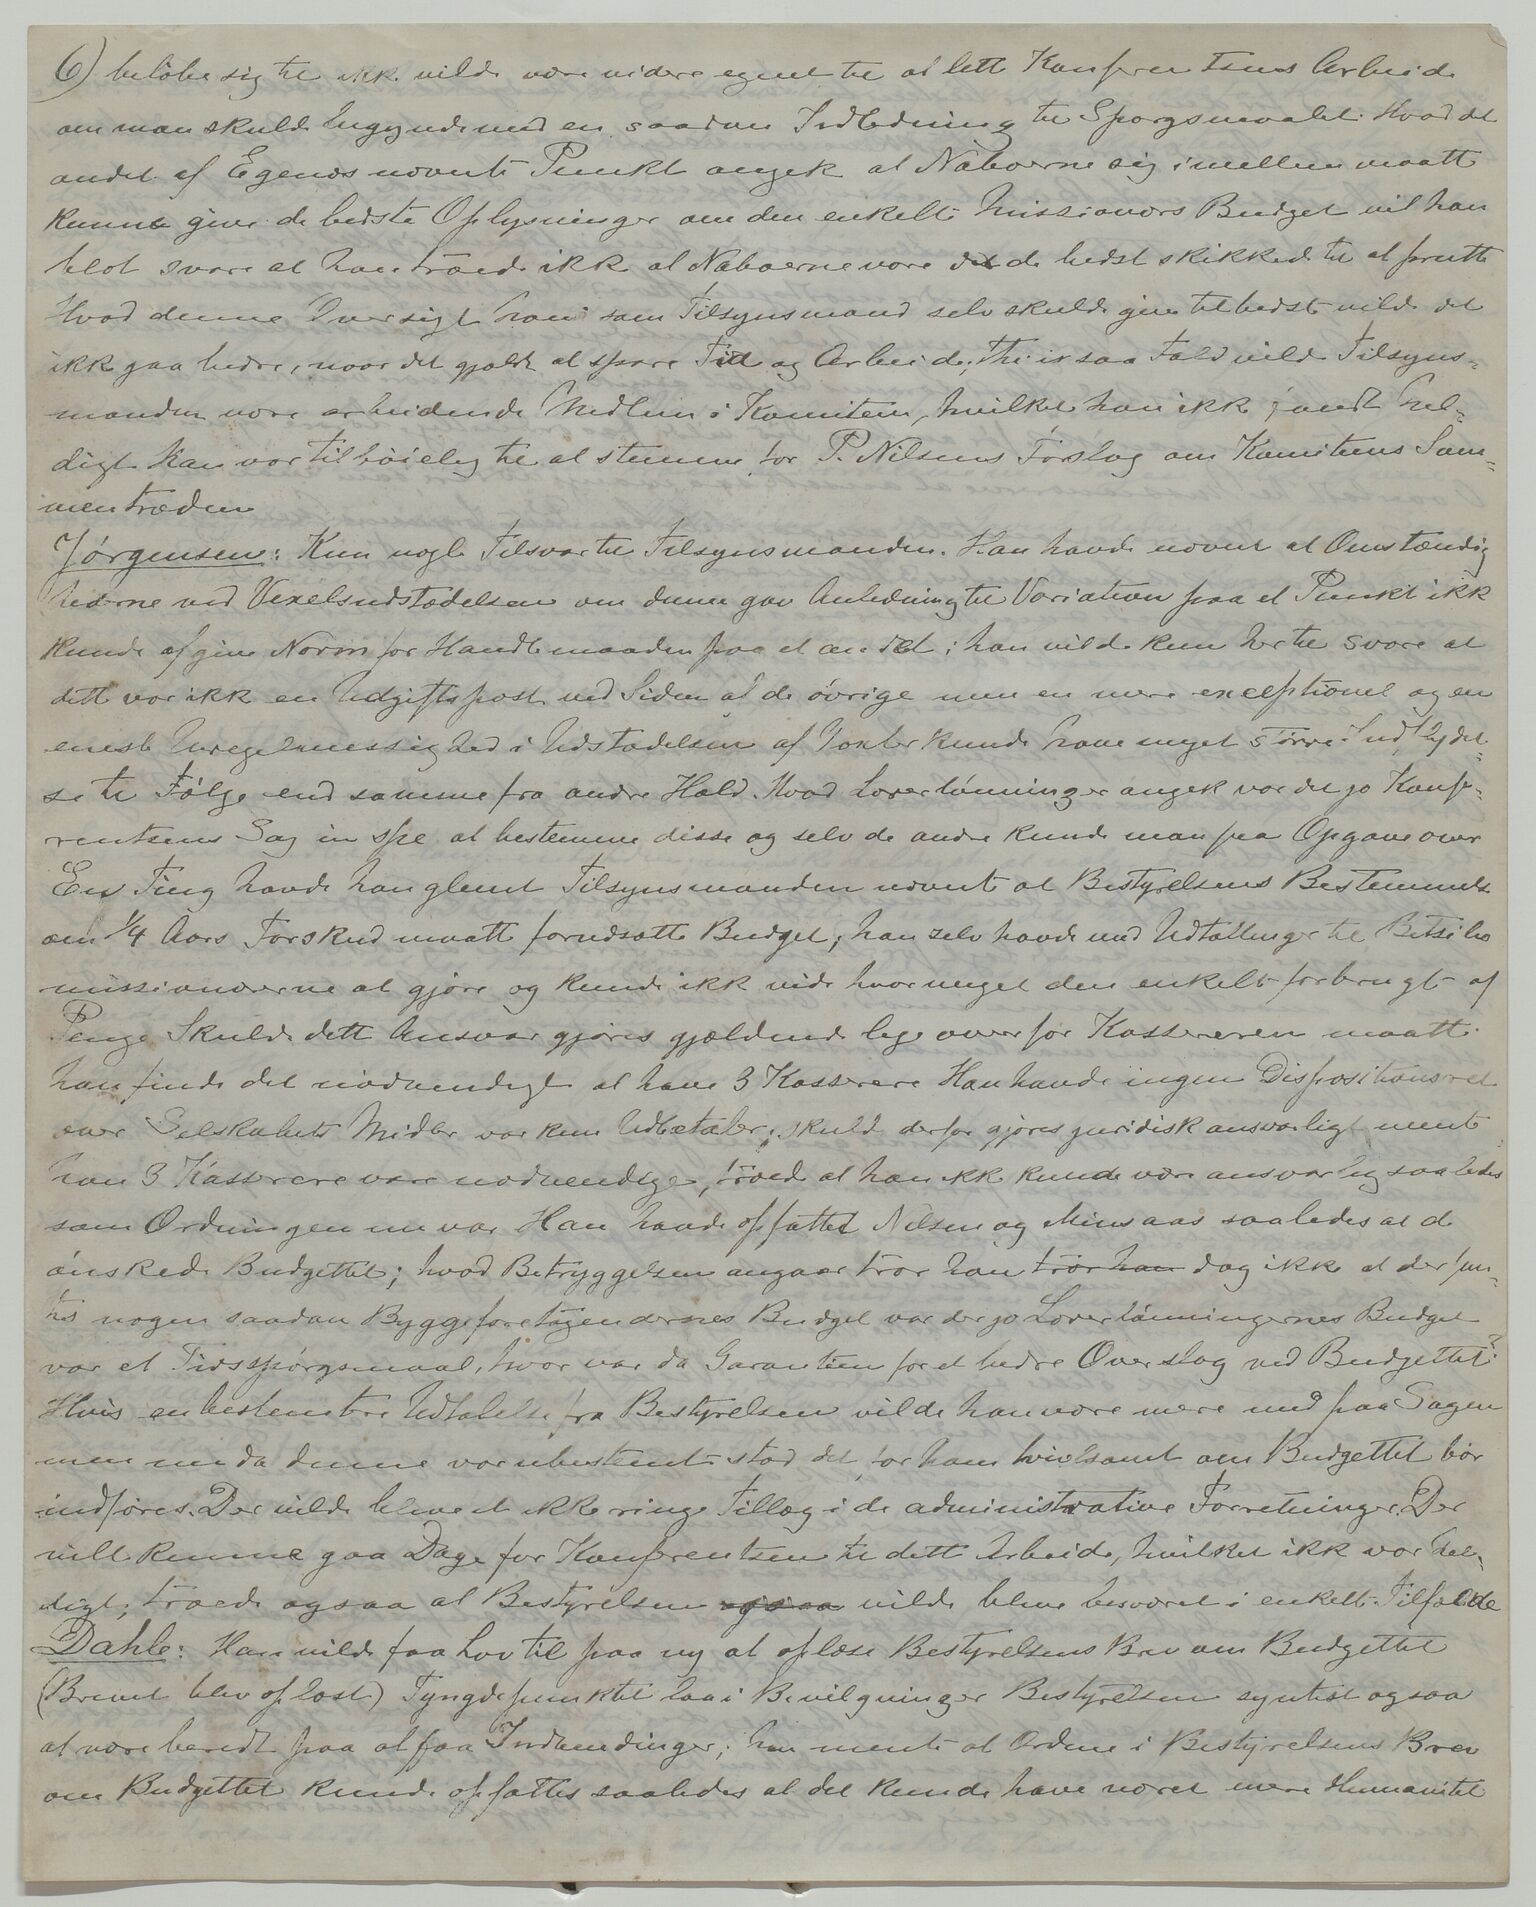 6) beløbe sig til ikke vilde være videre egnet til at lette Konferentsens Arbeide
om man skulde begynde med en saadan Indledning til Spørgsmaalet. Hvad det
andet af Egenæs nævnte Punkt angik at Naboerne sig imellem maatte
kunne give de bedste Oplysninger om den enkelte Missionærs Budget vil han
blot svare at han troede ikke at Naboerne vare de bedst skikkede til at forette
Hvad denne Oversigt han som Tilsynsmand selv skulde give tilbedst vilde det
ikke gaa bedre, naar det gjaldt at spare Tid og Arbeide, thi i saa Fald vilde Tilsyns-
manden være arbeidende Medlem i Komiteen, hvilket han ikke fandt hel-
digt han var tilbøielig til at stemme for P. Nilsens Forslag om Komiteens Sam-
mentræden
Jørgensen: Kun nogle Tilsvar til Tilsynsmanden. Han havde nævnt at Omstændig
hederne ved Vexelsudstædelsen om denne gav Anledning til Variation paa et Punkt ikke
kunde afgive Norm for Handlemaaden paa et andet; han vilde kun hertil svare at
dette var ikke en Udgiftspost ved Siden af de øvrige men en mere exceptionel og en
eneste Uregelmessighed i Udstædelsen af Vexler kunde have meget større Indflydel-
se til Følge end samme fra andre Hold. Hvad Lærerlønninger angik var det jo Konfe-
rentsens Sag in spe at bestemme disse og selv de andre kunde man faa Opgave over
En Ting havde han glemt Tilsynsmanden nævnte at Bestyrelsens Bestemmelse
om 1/4 Aars Forskud maatte forudsætte Budget; han selv havde med Udtællinger til Betsileo
missionærerne at gjøre og kunde ikke vide hvor meget den enkelte forbrugte af
Penge Skulde dette Ansvar gjøres gjældende lige overfor Kassereren maatte
han finde det nødvendigt at have 3 Kasserere Han havde ingen Dispositionsret
over Selskabets Midler var kun Udbetaler; skulde derfor gjøres juridisk ansvarligt mente
han 3 Kasserere være nødvendige, troede at han ikke kunde være ansvarlig saaledes
som Ordningen nu var Han havde opfattet Nilsen og Minsaas saaledes at de
ønskede Budgettet; hvad Betryggelsen angaar tror han tror han dog ikke at der fan-
tes nogen saadan Byggeforetagendernes Budget var der jo Lærerlønningernes Budget
var et Tidsspørgsmaal, hvor var da Garantien for et bedre Overslag ved Budgettet?
Hvis en bestemtere Udtalelse fra Bestyrelsen vilde han være mere med paa Sagen
men nu da denne var ubestemt stod det for ham tvivlsomt om Budgettet bør
indføres. Der vilde blive et ikke ringe Tillæg i de administrative Forretninger. Der
vilde kunne gaa Dage for Konferentsen til dette Arbeide, hvilket ikke var hel-
digt; troede ogsaa at Bestyrelsen ogsaa vilde blive besværet i enkelte Tilfælde
Dahle: Han vilde faa Lov til paa ny at oplæse Bestyrelsens Brev om Budgettet
(Brevet blev oplæst) Tyngdepunktet laa i Bevilgninger Bestyrelsen syntest ogsaa
at være beredt paa at faa Indvendinger; han mente at Ordene i Bestyrelsens Brev
om Budgettet kunde opfattes saaledes at det kunde have været mere Humanitet